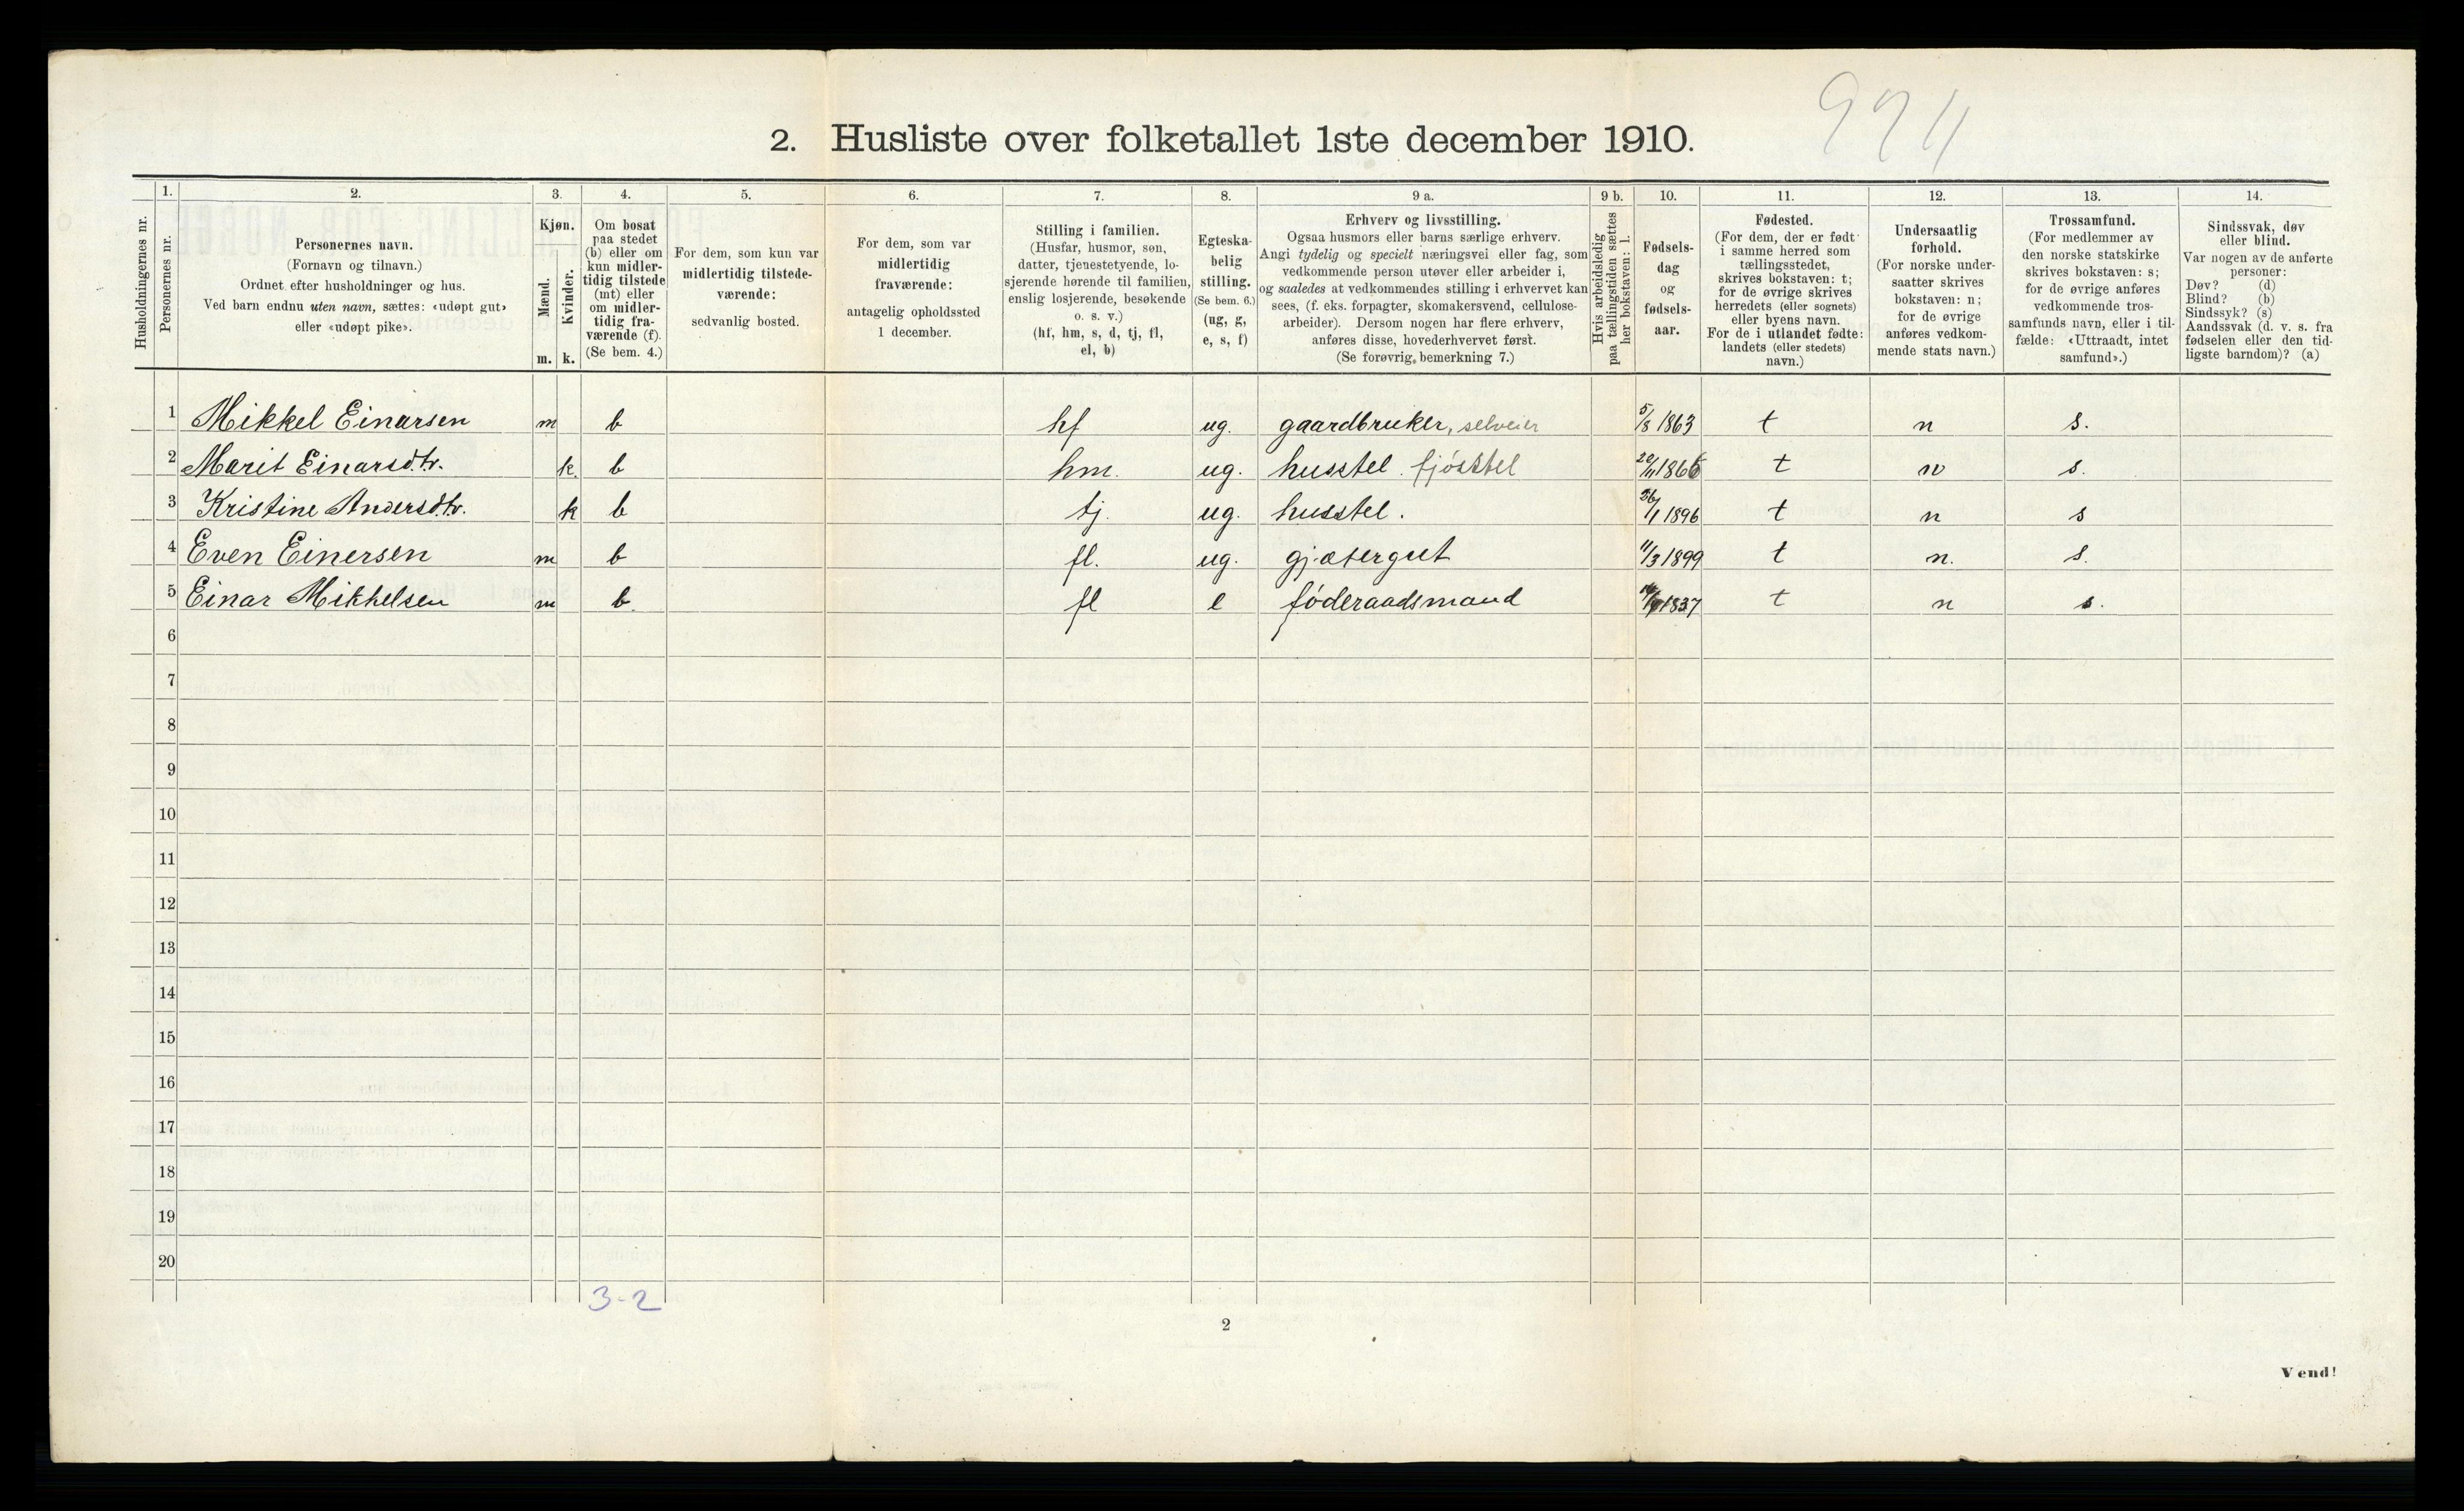 974
2. Husliste over folketallet 1ste december 1910.
1. 2. 3. 4. 5. 6. 7. 8. 9 a. 9 b. 10. 11. 12. 13. 14.
Husholdningernes nr.
Personernes nr.
Personernes navn.
(Fornavn og tilnavn.)
Ordnet efter husholdninger og hus.
Ved barn endnu uten navn, sættes: «udøpt gut»
eller «udøpt pike».
Kjøn.
Mænd.
Kvinder.
m. k.
Om bosat
paa stedet
(b) eller om
kun midler-
tidig tilstede
(mt) eller
om midler-
tidig fra-
værende (f).
(Se bem. 4.)
For dem, som kun var
midlertidig tilstede-
værende:
sedvanlig bosted.
For dem, som var
midlertidig
fraværende:
antagelig opholdssted
1 december.
Stilling i familien.
(Husfar, husmor, søn,
datter, tjenestetyende, lo-
sjerende hørende til familien,
enslig losjerende, besøkende
o. s. v.)
(hf, hm, s, d, tj, fl,
el, b)
Egteska-
belig
stilling.
(Se bem. 6.)
(ug, g,
e, s, f)
Erhverv og livsstilling.
Ogsaa husmors eller barns særlige erhverv.
Angi tydelig og specielt næringsvei eller fag, som
vedkommende person utøver eller arbeider i,
og saaledes at vedkommendes stilling i erhvervet kan
sees, (f. eks. forpagter, skomakersvend, cellulose-
arbeider). Dersom nogen har flere erhverv,
anføres disse, hovederhvervet først.
(Se forøvrig bemerkning 7.)
Hvis arbeidsledig
paa tællingstiden sættes
her bokstaven: l.
Fødsels-
dag
og
fødsels-
aar.
Fødested.
(For dem, der er født
i samme herred som
tællingsstedet,
skrives bokstaven: t;
for de øvrige skrives
herredets (eller sognets)
eller byens navn.
For de i utlandet fødte:
landets (eller stedets)
navn.)
Undersaatlig
forhold.
(For norske under-
saatter skrives
bokstaven: n;
for de øvrige
anføres vedkom-
mende stats navn.)
Trossamfund.
(For medlemmer av
den norske statskirke
skrives bokstaven: s;
for de øvrige anføres
vedkommende tros-
samfunds navn, eller i til-
fælde: «Uttraadt, intet
samfund».)
Sindssvak, døv
eller blind.
Var nogen av de anførte
personer:
Døv? (d)
Blind? (b)
Sindssyk? (s)
Aandssvak (d. v. s. fra
fødselen eller den tid-
ligste barndom)? (a)
1 Mikkel Einarsen m b hf ug. gaardbruker, selveier 5/8 1863 t n s.
2 Marit Einarsdtr. k. b hm. ug. husstel. fjøsstel 20/11 1866 t n s.
3 Kristine Andersdtr. k b tj. ug. husstel. 26/1 1896 t n s
4 Even Einersen m b fl. ug. gjætergut 11/3 1899 t n. s.
5 Einar Mikkelsen m b. fl e føderaadsmand 1837 t n s.
6
7
8
9
10
11
12
13
14
15
16
17
18
19
20
3-2
2
Vend!